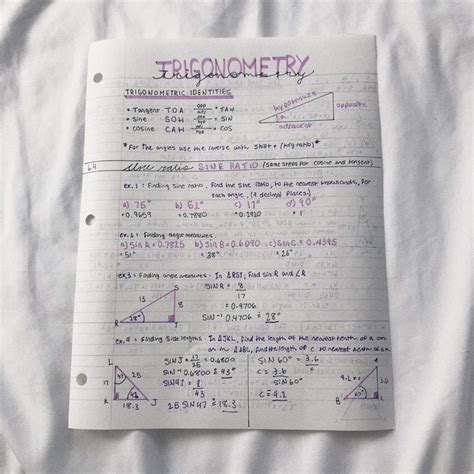 TRIGONOMETRY
trigonometry
TRIGONOMETRIC IDENTITIES
• Tangent TOA = opp/adj = TAN
• sine SOH = opp/hyp = SIN
• cosine CAH = adj/hyp = COS
hypotenuse
opposite
adjacent
*For the angles use the inverse with shift + (trig ratio)*
6.4
sine ratio SINE RATIO (same steps for cosine and tangent)
ex. 1 : Finding sine ratio. Find the sine ratio, to the nearest thousands, for
each angle. (4 decimal places)
a) 75° b) 52° c) 17° d) 90°
= 0.9659 = 0.7880 = 0.2920 = 1
ex. 2 : Finding angle measures.
a) sin A = 0.7825 b) sin B = 0.6090 c) sin C = 0.4395
= 51° = 38° = 26°
ex. 3 : Finding angle measures. In ΔRST, find sin R and ∠R
SIN R = 8
17
= 0.4706
SIN⁻¹ 0.4706 = 28°
S
13
8
R
28°
T
ex. 4 : Finding side lengths. In ΔJKL, find the length of the nearest tenth of a cm
ΔABC, find the length of c to nearest tenth of cm
L
25
17
K
18.3
J
SIN J = 17 = 0.6800
25
SIN⁻¹ 0.6800 = 43°
SIN 47 = 8
25 SIN 47 = 18.3
SIN 60° = 3.6
c
c = 3.6
SIN 60°
c = 4.2
A
4.2
B
60°